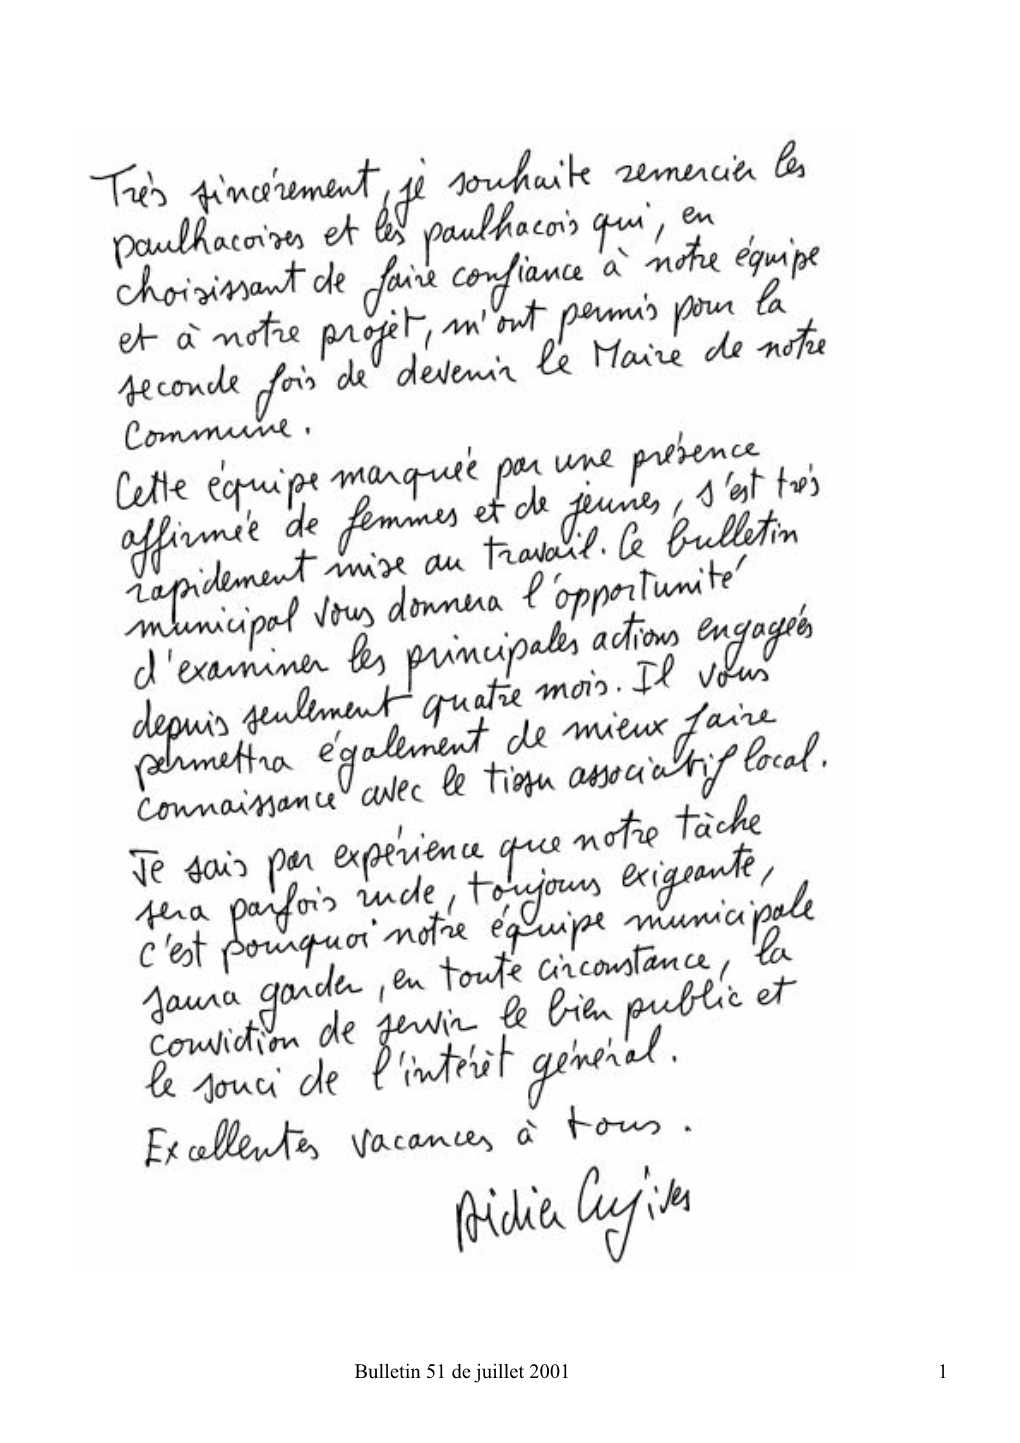 Très sincèrement, je souhaite remercier les
paulhacoises et les paulhacois qui, en
choisissant de faire confiance à notre équipe
et à notre projet, m'ont permis pour la
seconde fois de devenir le Maire de notre
Commune.
Cette équipe marquée par une présence
affirmée de femmes et de jeunes, s'est très
rapidement mise au travail. Ce bulletin
municipal vous donnera l'opportunité
d'examiner les principales actions engagées
depuis seulement quatre mois. Il vous
permettra également de mieux faire
connaissance avec le tissu associatif local.
Je sais par expérience que notre tâche
sera parfois rude, toujours exigeante,
c'est pourquoi notre équipe municipale
saura garder, en toute circonstance, la
conviction de servir le bien public et
le souci de l'intérêt général.
Excellentes vacances à tous.
Didier Cujives
Bulletin 51 de juillet 2001 1